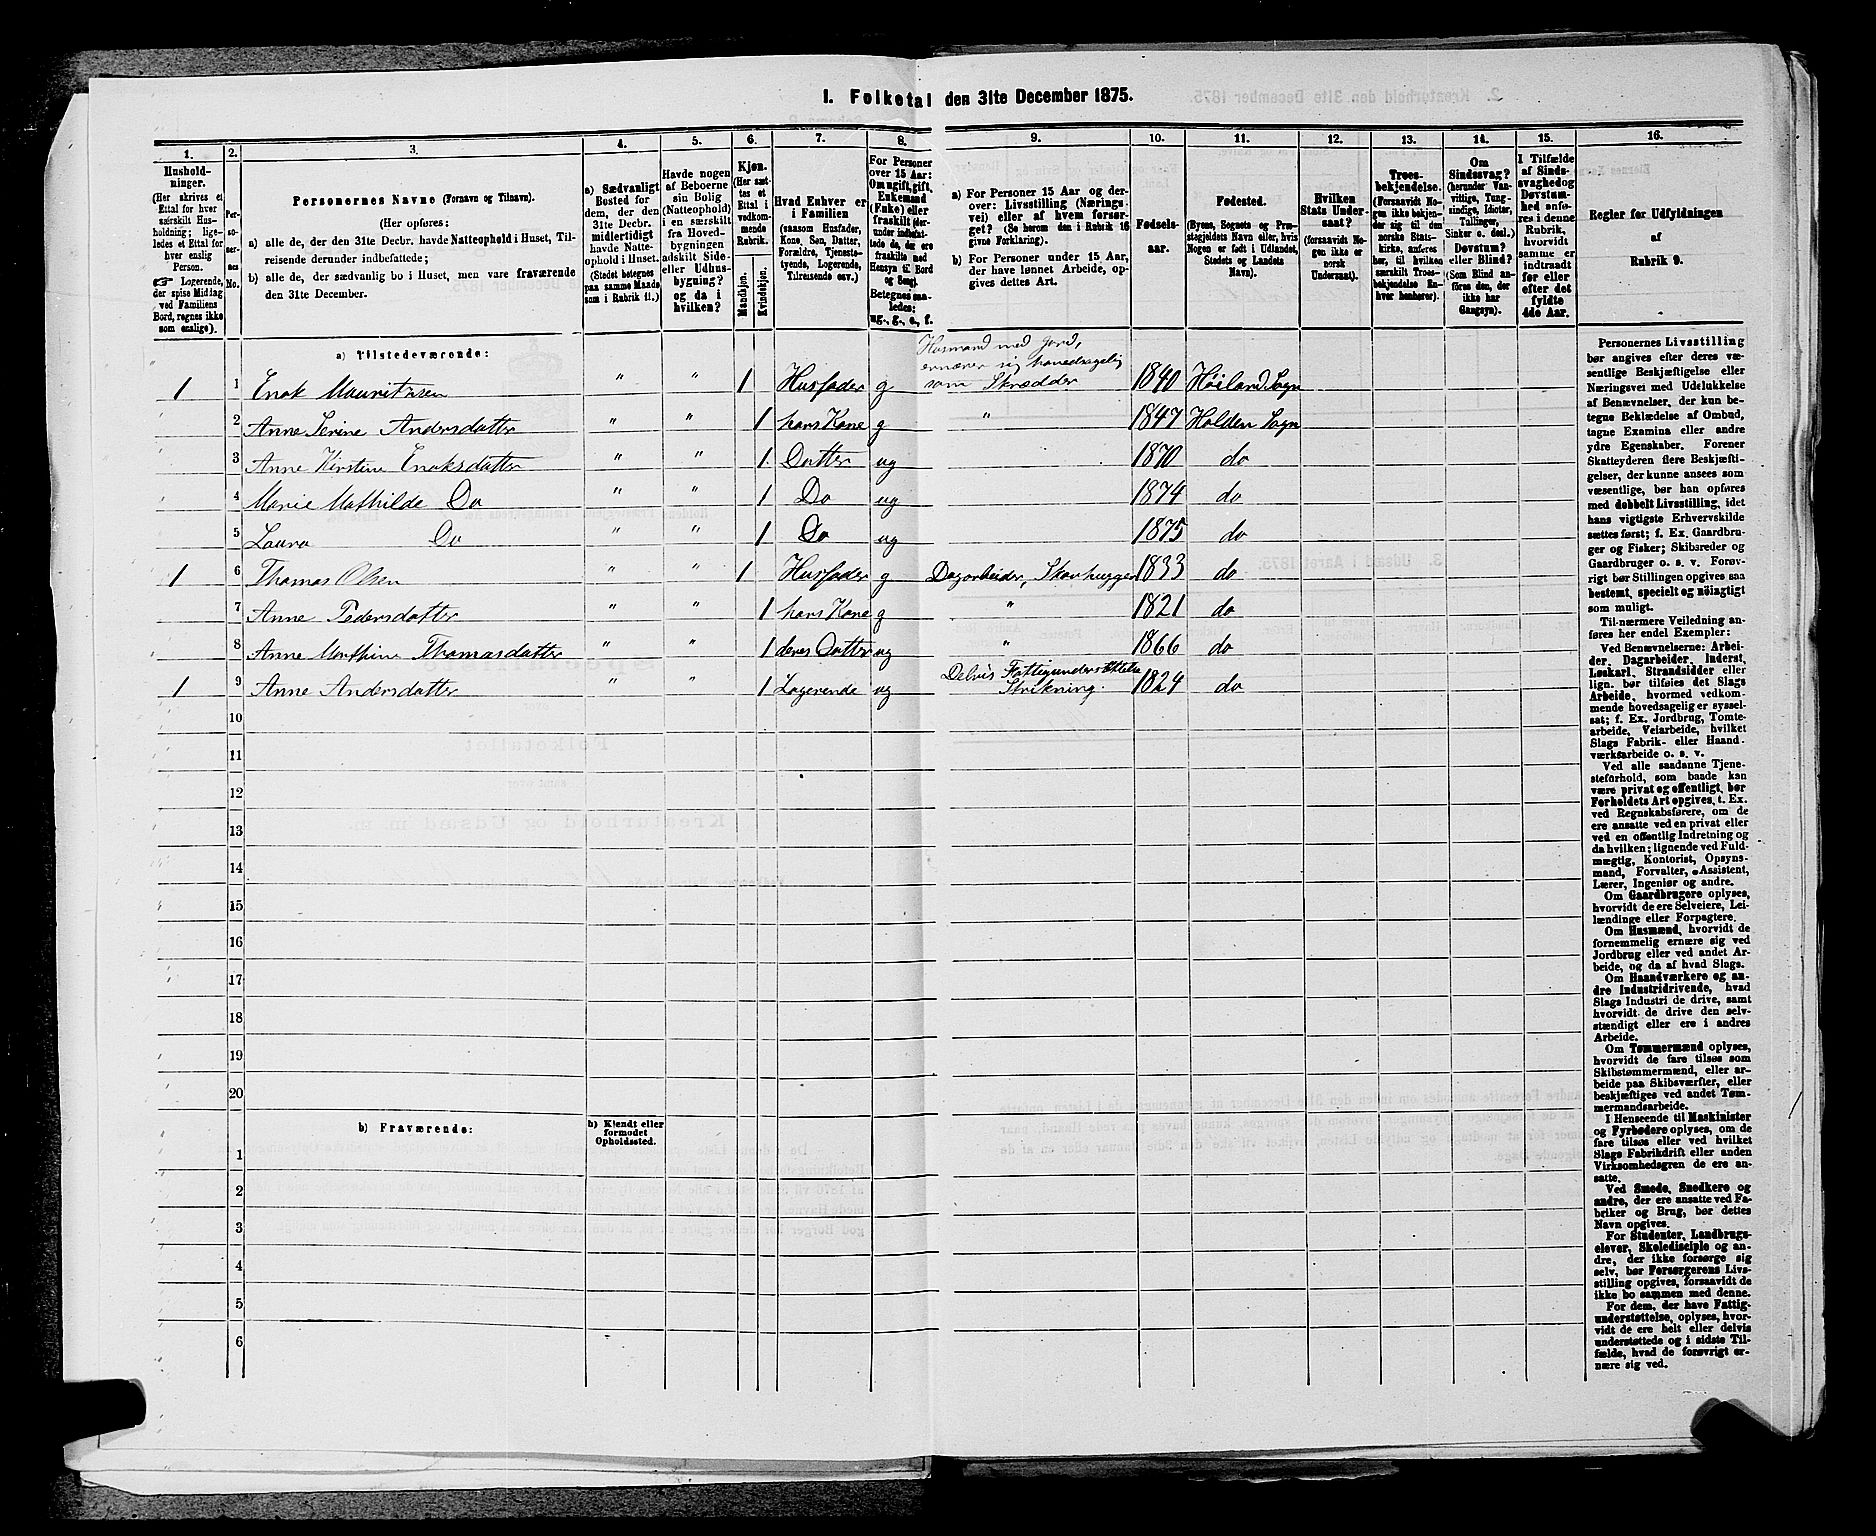 I. Folketal den 31te December 1875.
1.
2.
3.
4.
5.
6.
7.
8.
9.
10.
11.
12.
13.
14.
15.
16.
Hushold-
ninger.
(Her skrives et
Ettal for hver
særskilt Hus-
holdning; lige-
ledes et Ettal for
hver enslig
Person.
☞ Logerende,
der spise Middag
ved Familiens
Bord, regnes ikke
som enslige).
Per-
so-
ner-
nes
No.
Personernes Navne (Fornavn og Tilnavn).
(Her opføres:
a) alle de, der den 31te Decbr. havde Natteophold i Huset, Til-
reisende derunder indbefattede;
b) alle de, der sædvanlig bo i Huset, men vare fraværende
den 31te December.
a) Sædvanligt
Bosted for
dem, der den
31te Decbr.
midlertidigt
havde Natte-
ophold i Huset.
(Stedet betegnes
paa samme Maade
som i Rubrik 11.)
Havde nogen
af Beboerne
sin Bolig
(Natteophold)
i en særskilt
fra Hoved-
bygningen
adskilt Side-
eller Udhus-
bygning?
og da i
hvilken?
Kjøn.
(Her sæt-
tes et
Ettal i
vedkom-
mende
Rubrik.
Mandkjøn.
Kvindekjøn.
Hvad Enhver er
i Familien
(saasom Husfader,
Kone, Søn, Datter,
Forældre, Tjeneste-
tyende, Logerende,
Tilreisende osv.)
For Personer
over 15 Aar:
Om ugift, gift,
Enkemand
(Enke) eller
fraskilt (der-
under indbefat-
tede de, der ere
fraskilte med
Hensyn til Bord
og Seng).
Betegnes saa-
ledes:
ug., g., e., f.
a) For Personer 15 Aar og der-
over: Livsstilling (Nærings-
vei) eller af hvem forsør-
get? (Se herom den i Rubrik 16
givne Forklaring).
b) For Personer under 15 Aar,
der have lønnet Arbeide, op-
gives dettes Art.
Fødsels-
aar.
Fødested.
(Byens, Sognets og Præ-
stegjeldets Navn eller, hvis
Nogen er født i Udlandet,
Stedets og Landets
Navn).
Hvilken
Stats Under-
saat?
(forsaavidt No-
gen ikke er
norsk
Undersaat).
Troes-
bekjendelse.
(Forsaavidt No-
gen ikke bekjen-
der sig til den
norske Stats-
kirke, anføres
her, til hvilken
særskilt Troes-
bekjendelse En-
hver henhører).
Om
Sindssvag?
(herunder Van-
vittige, Tung-
sindige, Idioter,
Tullinger,
Sinker o. desl.)
Døvstum?
eller Blind?
(Som Blind an-
føres den, der
ikke har
Gangsyn).
I Tilfælde
af Sinds-
svaghed og
Døvstum-
hed anfø-
res i denne
Rubrik,
hvorvidt
samme er
indtraadt
før eller
efter det
fyldte
4de Aar.
Regler for Udfyldningen
af
Rubrik 9.
a) Tilstedeværende:
Husmand med Jord,
ernærer sig hovedsagelig
1 1 Enok Mauritzsen " " 1 Husfader g som Skrædder 1840 Høiland Sogn
2 Anne Serine Andersdatter " " 1 hans Kone g " 1847 Holden Sogn
3 Anne Kirstine Enoksdatter " " 1 Datter ug 1870 do
4 Marie Mathilde Do " " 1 Do ug 1874 do
5 Laura Do " " 1 Do ug 1875 do
1 6 Thomas Olsen " " 1 Husfader g Dagarbeider, Skovhugger 1833 do
7 Anne Pedersdatter " " 1 hans Kone g " 1821 do
8 Anne Marthine Thomasdatter " " 1 deres Datter ug " 1866 do
Delvis Fattigunderstøttelse
1 9 Anne Andersdatter " " 1 Logerende ug Strikning. 1824 do
10
11
12
13
14
15
16
17
18
19
20
b) Fraværende:
b) Kjendt eller
formodet
Opholdssted.
1
2
3
4
5
6
Personernes Livsstilling
bør angives efter deres væ-
sentlige Beskjæftigelse eller
Næringsvei med Udelukkelse
af Benævnelser, der kun be-
tegne Beklædelse af Ombud,
tagne Examina eller andre
ydre Egenskaber. Forener
Skatteyderen flere Beskjæfti-
gelser, der kunne ansees som
væsentlige, bør han opføres
med dobbelt Livsstilling, idet
hans vigtigste Erhvervskilde
sættes først; f. Ex. Gaardbru-
ger og Fisker; Skibsreder og
Gaardbruger o. s. v. Forøv-
rigt bør Stillingen opgives saa
bestemt, specielt og nöiagtigt
som muligt.
Til nærmere Veiledning an-
føres her endel Exempler:
Ved Benævnelserne: Arbei-
der, Dagarbeider, Inderst,
Løskarl, Strandsidder eller
lign. bør tilføies det Slags
Arbeide, hvormed vedkom-
mende hovedsagelig er syssel-
sat; f. Ex. Jordbrug, Tomte-
arbeide, Veiarbeide, hvilket
Slags Fabrik- eller Haand-
værksarbeide o. s. v.
Ved alle saadanne Tjene-
steforhold, som baade kan
være privat og offentligt, bør
Forholdets Art opgives, t. Ex.
ved Regnskabsførere, om de
ere ansatte ved en privat eller
ved en offentlig Indretning og
da hvilken; lignende ved Fuld-
mægtig, Kontorist, Opsyns-
mand, Forvalter, Assistent,
Lærer, Ingeniør og andre.
Om Gaardbrugere oplyses,
hvorvidt de ere Selveiere, Lei-
lændinge eller Forpagtere.
Om Husmænd, hvorvidt de
fornemmelig ernære sig ved
Jordbrug eller ved andet Ar-
beide, og da af hvad Slags.
Om Haandværkere og an-
dre Industridrivende, hvad
Slags Industri de drive, samt
hvorvidt de drive den selv-
stændigt eller ere i andres
Arbeide.
Om Tømmermænd oplyses,
hvorvidt de fare tilsøs som
Skibstømmermænd, eller ar-
beide paa Skibsværfter, eller
beskjæftiges ved andet Tøm-
mermandsarbeide.
I Henseende til Maskinister
og Fyrbødere oplyses, om de
fare tilsøs eller ved hvilket
Slags Fabrikdrift eller anden
Virksomhedsgren de ere an-
satte.
Ved Smede, Snedkere og
andre, der ere ansatte ved Fa-
briker og Brug, bør dettes
Navn opgives.
For Studenter, Landbrugs-
elever, Skoledisciple og an-
dre, der ikke forsørge sig
selv, bør Forsørgerens Livs-
stilling opgives, forsaavidt de
ikke bo sammen med denne.
For dem, der have Fattig-
understøttelse, oplyses, hvor-
vidt de ere helt eller delvis
understøttede og i sidste Til-
fælde, hvad de forøvrigt er-
nære sig ved.